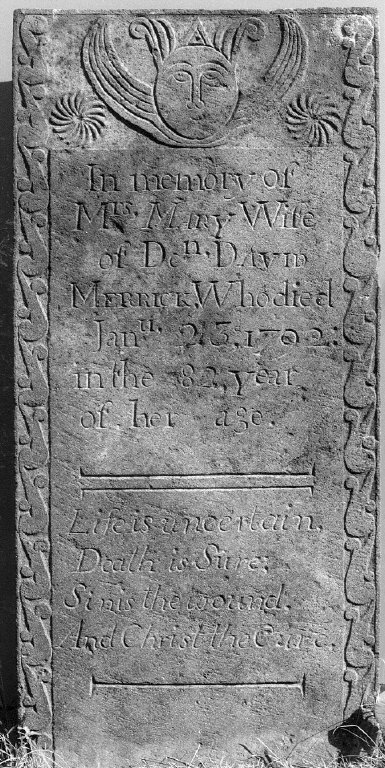 In memory of
Mrs. MARY Wife
of Den. DAVID
MERRICK, Who died
Janu. 23, 1792:
in the 82, year
of her age.
Life is uncertain,
Death is Sure;
Sin is the wound,
And Christ the Cure.